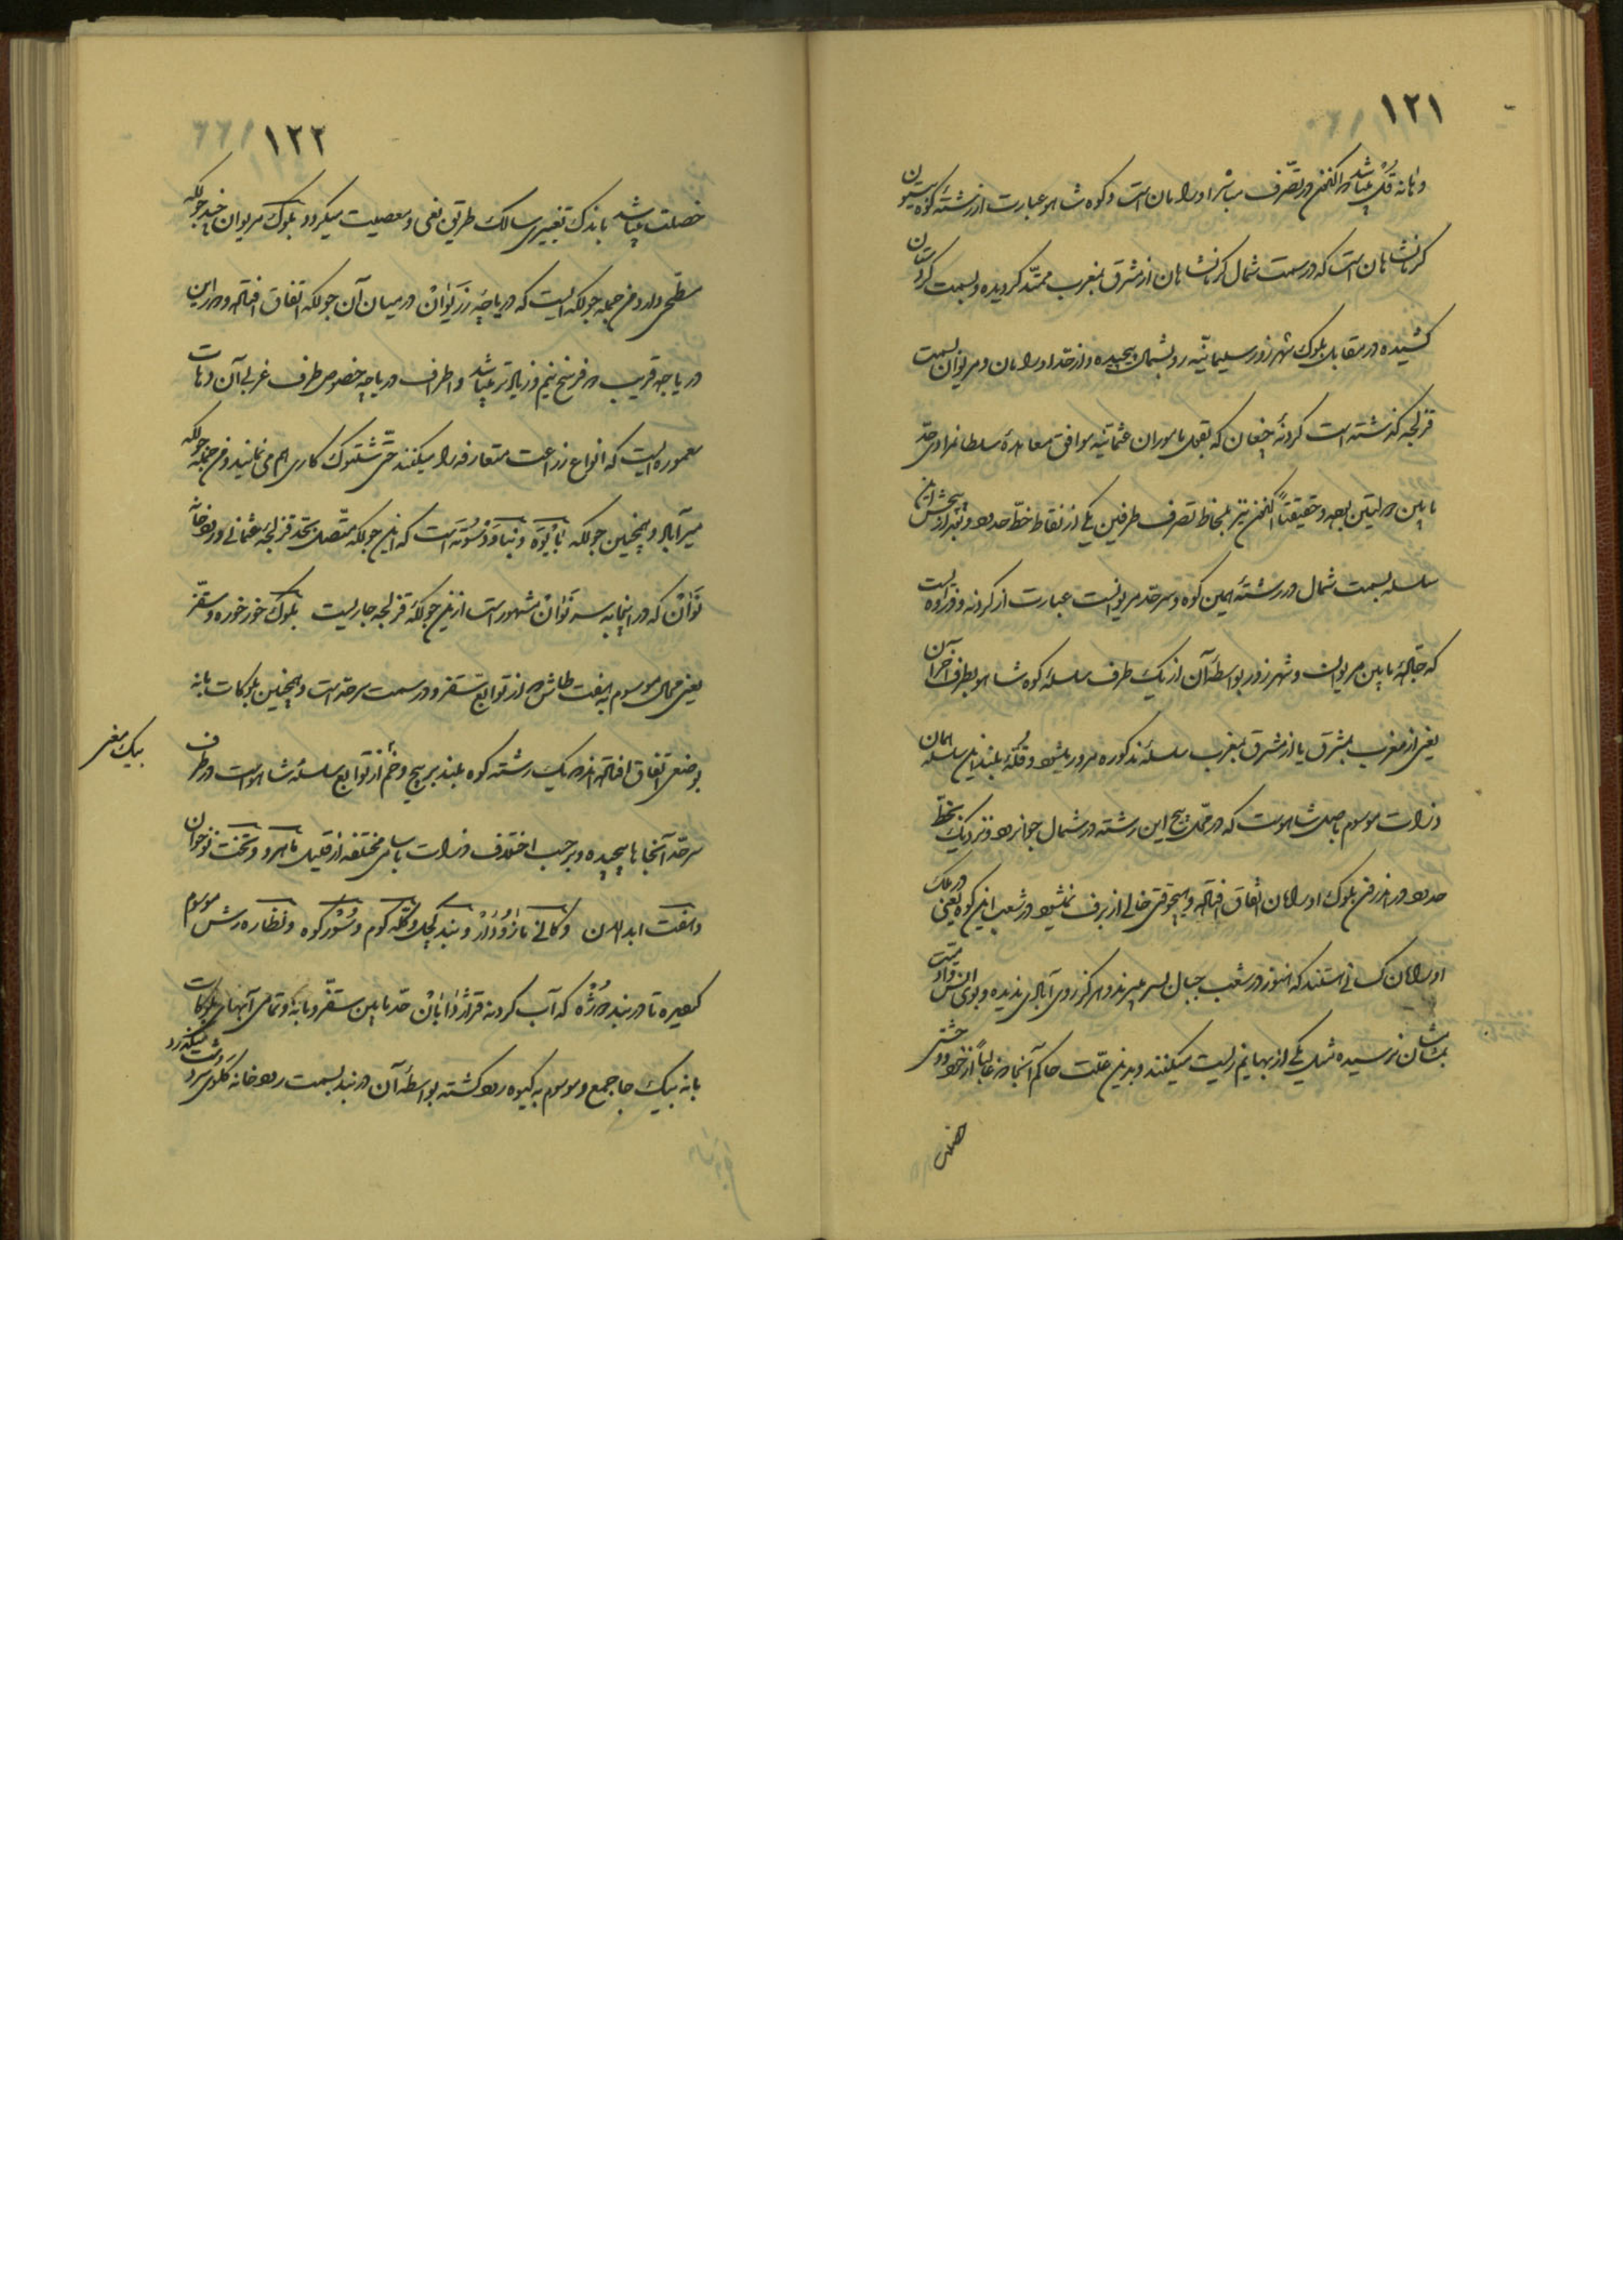 ۱۲۱
و هانه قل میباشد که اکنون در تصرف مباشر اورامان است و کوه شاهو عبارت از رشته کوه بیستون
کرمانشاهان است که در سمت شمال کرمانشاهان از مشرق بمغرب ممتد گردیده و بسمت کردستان
کشیده در مقابل بلوک شهر زور سلیمانیه رو بشمال پیچیده و از حد اورامان و مریوان بسمت
قزلجه گذشته است گردنه چقان که بقول ماموران عثمانیه موافق معاهده سلطان مراد حد
مابین دولتین بوده و حقیقتاً اکنون نیز بلحاظ تصرف طرفین یکی از نقاط خط حدود و بعد از پیچش این
سلسله بسمت شمال در رشته همین کوه و سرحد مریوانست عبارت از گردنه و فراوه ایست
که حالیه مابین مریوان و شهر زور بواسطه آن از یک طرف سلسله کوه شاهو بطرف آخر آن
یعنی از مغرب بمشرق یا از مشرق بمغرب سلسله مذکوره مرور میشود و قله بلند این سلسله همان
ذرات موسوم باصل شاهوست که در محل پیچ این رشته در شمال جوانرود و نزدیک بخط
حدود در اراضی بلوک اورامان اتفاق افتاده و هیچوقتی خالی از برف نمیشود در شعب این کوه یعنی در ملک
اورامان کسانی هستند که هنوز در شعب جبال بسر میبرند و هرگز روی آبادی ندیده و بوی انس و آدمیت
بمشامشان نرسیده مثل یکی از بهایم زیست میکنند و بدین علت حاکم آنجا هم غالباً از خود وحشی
خصلت
۱۲۲
خصلت میباشد باندک تغییری سالک طریق نفی و معصیت میگردد بلوک مریوان چند جولکه
مسطحی دارد من جمله جولکه ایست که دریاچه زریوان در میان آن جولکه اتفاق افتاده و دور این
دریاچه قریب دو فرسخ نیم و زیادتر میباشد و اطراف دریاچه خصوص طرف غربی آن دهات
معموره ایست که انواع زراعت متعارفه را میکنند حتی شلتوک کاری هم می نمایند و من جمله جولکه
میرآباد و همچنین جولکه بایوه و بناوه وسوته است که این جولکه متصل بحد قزلجه عثمانی و رودخانه
توان که در اینجا به سه توان مشهور است از این جولکه قزلجه جاریست بلوک خورخوره و سقز
یعنی محال موسوم به هفت طاش که از توابع سقز و در سمت سرحد است و همچنین بلوکات بانه
بوضعی اتفاق افتاده اند که یک رشته کوه بلند پر پیچ و خم از توابع سلسله شاهوست در طرف
یک مغربی
سرحد آنجا ها پیچیده و بر حسب اختلاف ذرات باسامی مختلفه از قبیل ماهرو و تخت نوخوان
و هفت ابدالان و کانی مازودار و بند کچل و کله کوم و سورکوه و نظاره رش موسوم
گردیده تا دربند دوژه که آب گردنه قرژدابان حد مابین سقز و بانه و تمامی آبهای بلوکات
بانه بیک جا جمع و موسوم به کیوه رود گشته بواسطه آن دربند بسمت رودخانه کلوی سردشت میگذرد